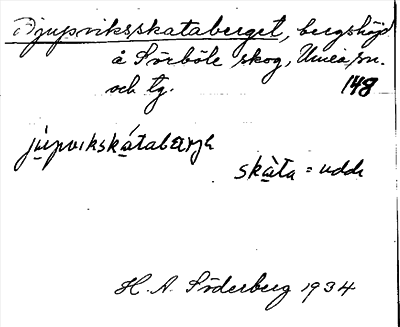 Djupviksskataberget, bergshöjd
å Sörböle skog, Umeå sn.
och tg. 148
jùpvikskátabærjə
skàta = udde
H. A. Söderberg 1934